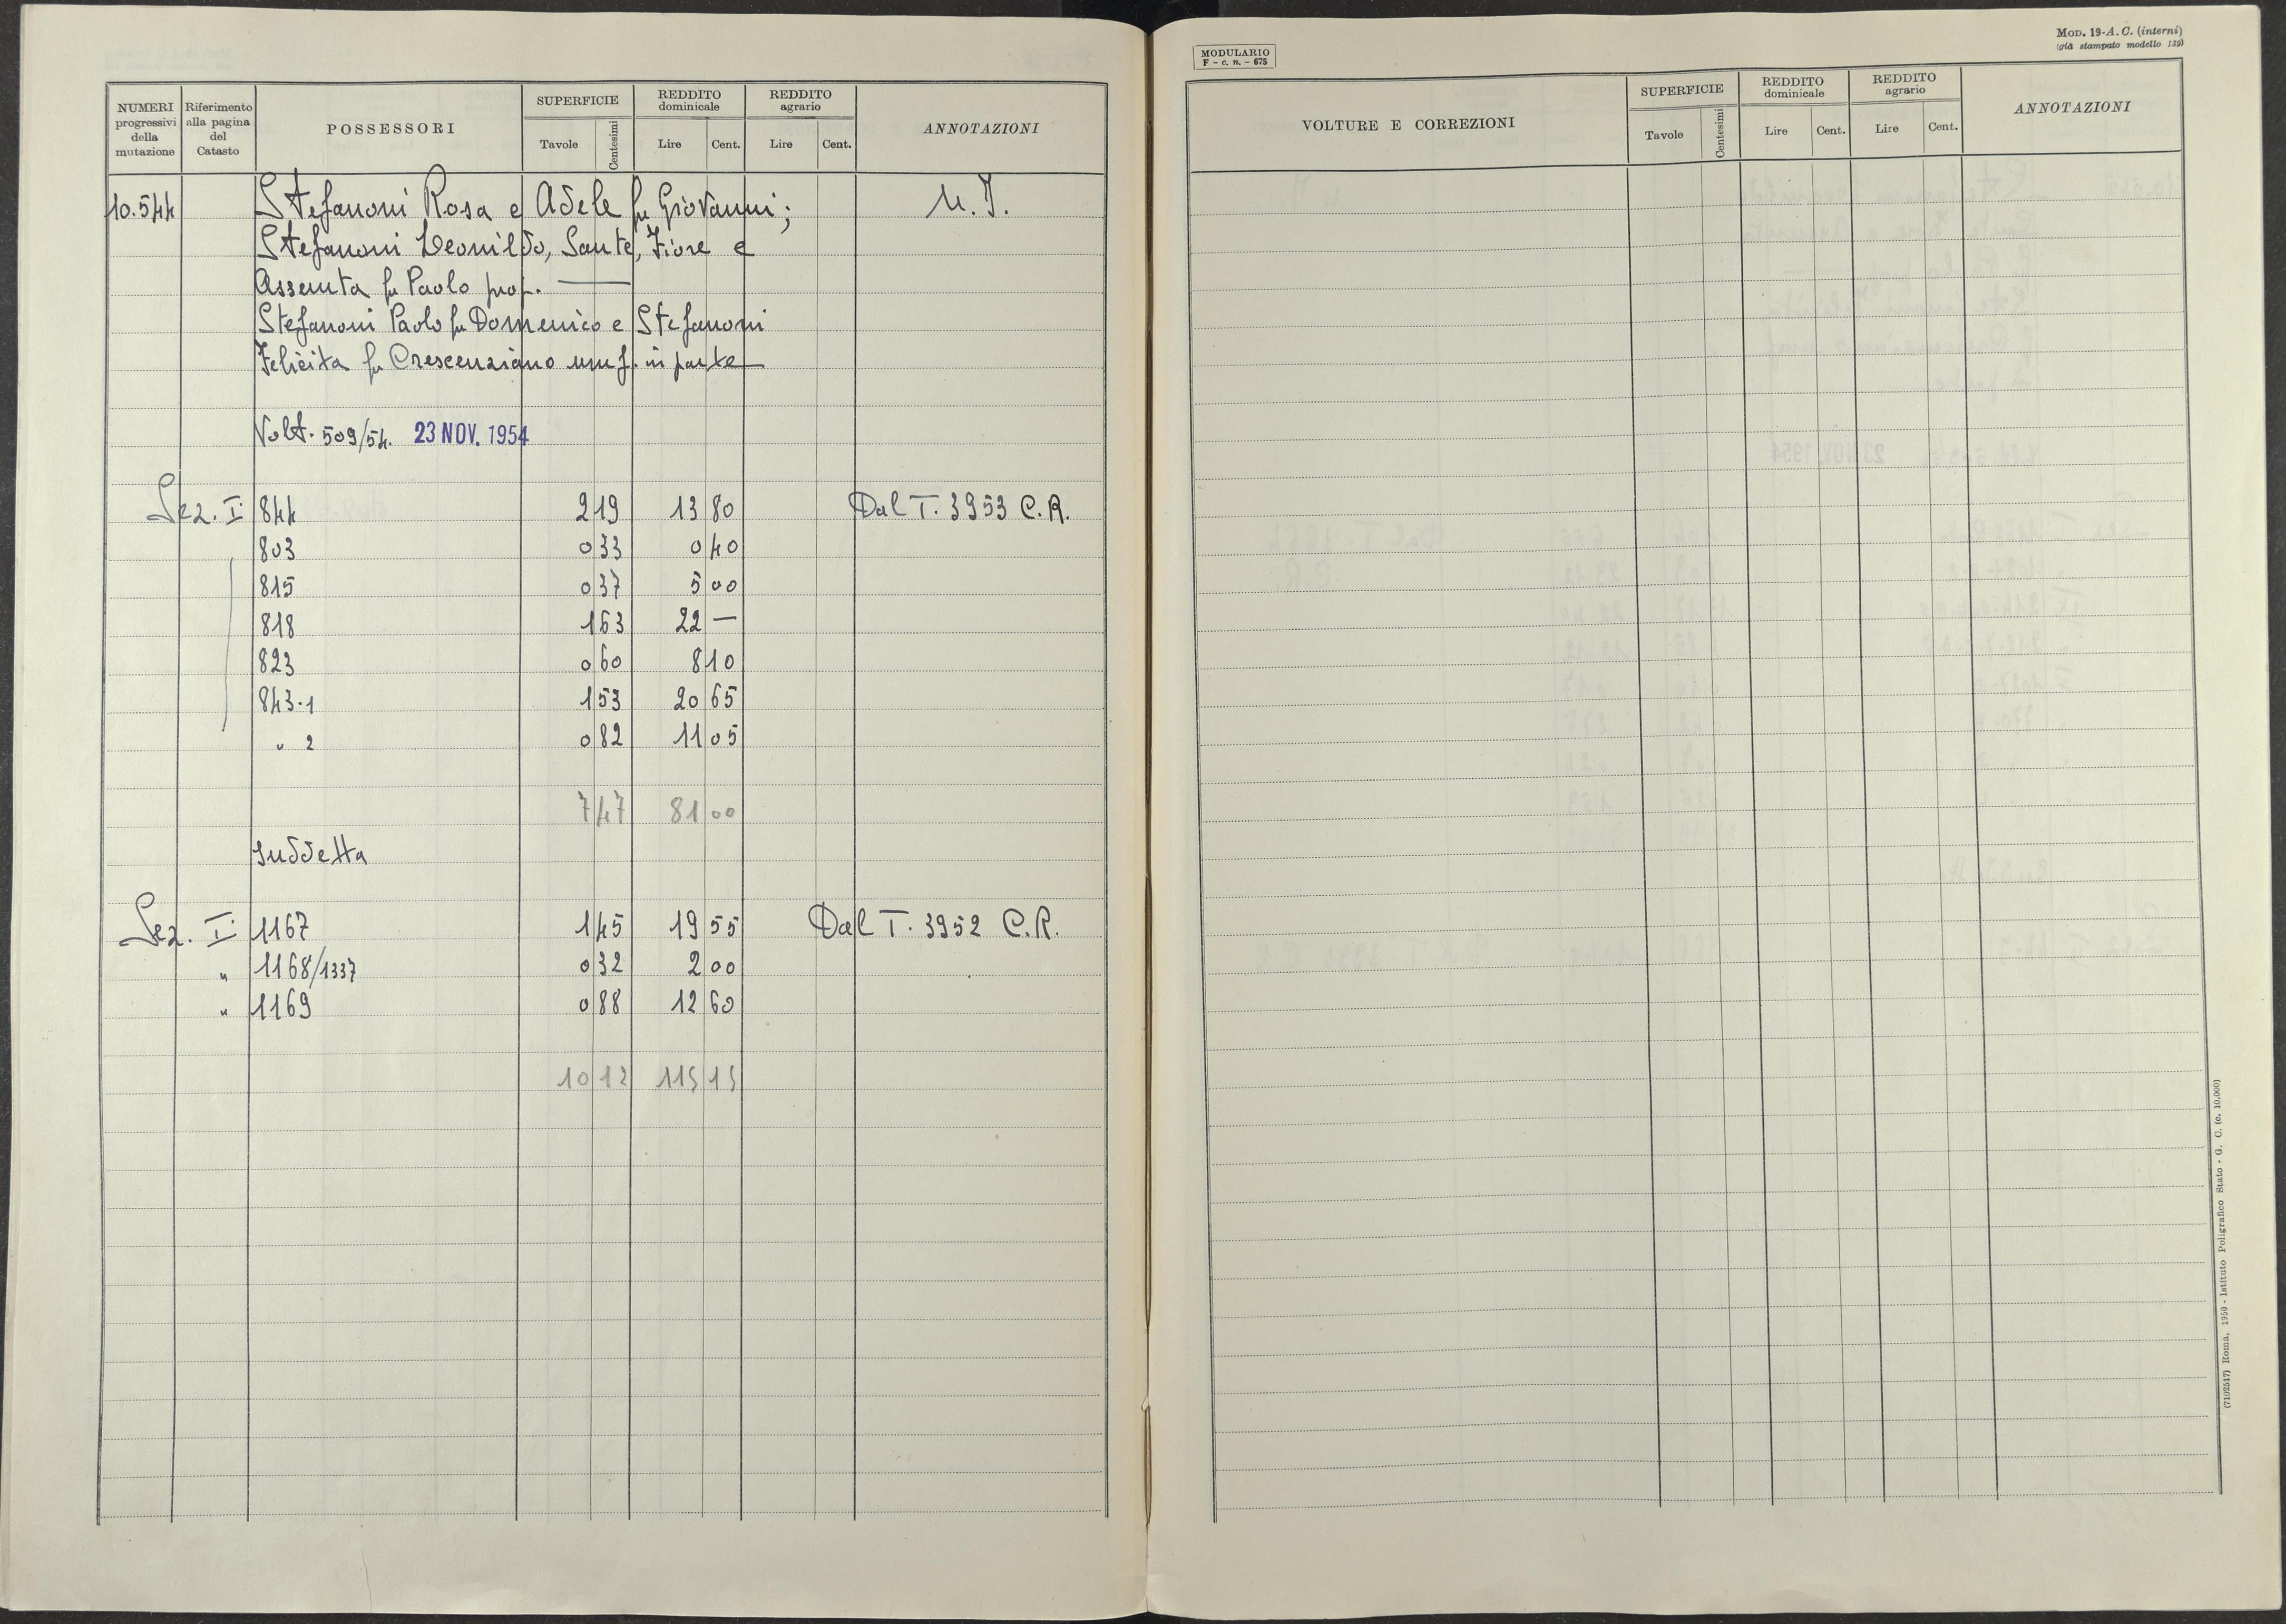 NUMERI progressivi della mutazione
Riferimento alla pagina del Catasto
POSSESSORI
SUPERFICIE
Tavole
Centesimi
REDDITO dominicale
Lire
Cent.
REDDITO agrario
Lire
Cent.
ANNOTAZIONI
10.544 Stefanoni Rosa e Adele fu Giovanni; U.I.
Stefanoni Leonildo, Sante, Fiore e
Assunta fu Paolo prop. —
Stefanoni Paolo fu Domenico e Stefanoni
Felicita fu Crescenziano usuf. in parte —
Volt. 509/54. 23 NOV. 1954
Sez. I. 844 2 19 13 80 Dal T. 3953 C.R.
803 0 33 0 40
815 0 37 5 00
818 1 63 22 —
823 0 60 8 10
843-1 1 53 20 65
" 2 0 82 11 05
7 47 81 00
Suddetta
Sez. I. 1167 1 45 19 55 Dal T. 3952 C.R.
" 1168/1337 0 32 2 00
" 1169 0 88 12 60
10 12 115 15
MODULARIO
F - c. n. - 675
MOD. 19-A. C. (interni)
(già stampato modello 139)
VOLTURE E CORREZIONI
SUPERFICIE
Tavole
Centesimi
REDDITO dominicale
Lire
Cent.
REDDITO agrario
Lire
Cent.
ANNOTAZIONI
(7102517) Roma, 1950 - Istituto Poligrafico Stato - G. C. (c. 10.000)